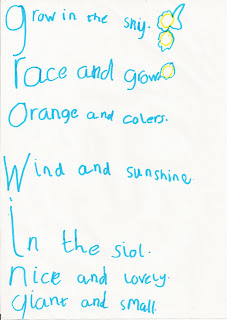 grow in the sniy.
race and grow
orange and colers.
Wind and sunshine
in the siol.
nice and lovely.
giant and small.